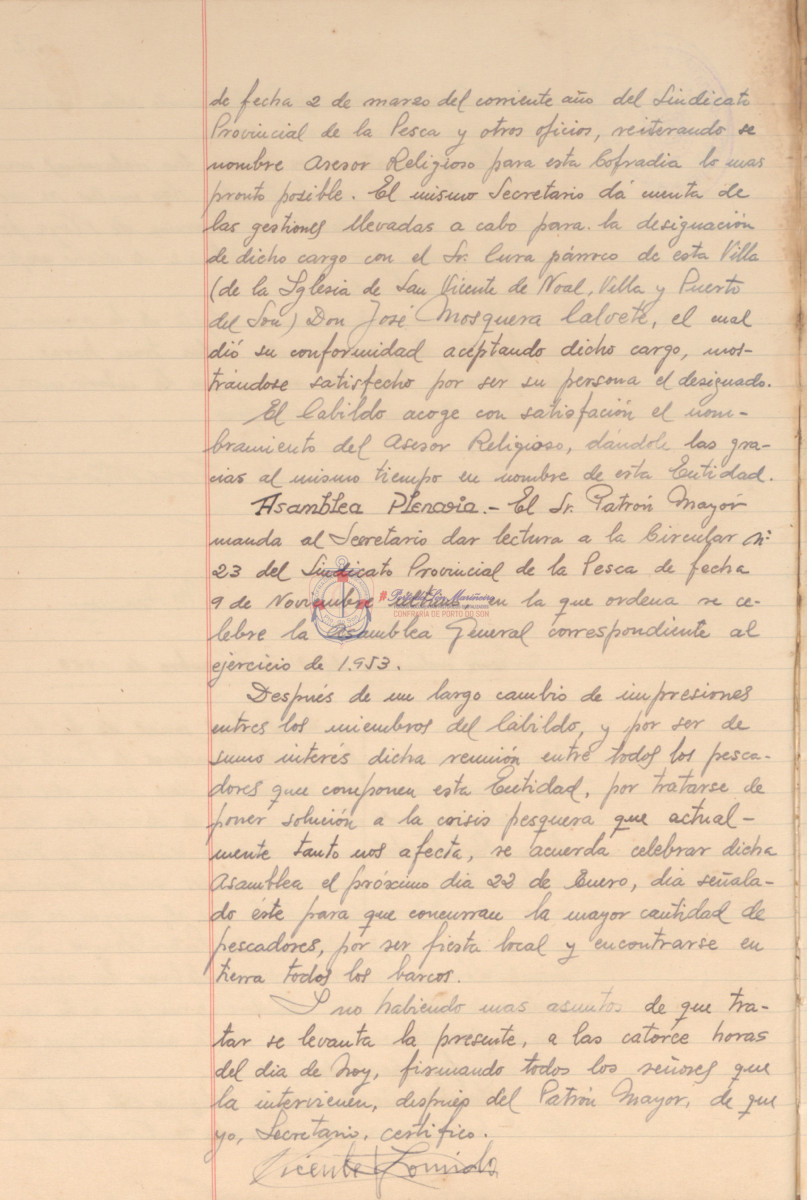 de fecha 2 de marzo del corriente año del Sindicato
Provincial de la Pesca y otros oficios, reiterando se
nombre Asesor Religioso para esta Cofradia lo mas
pronto posible. El mismo Secretario dá cuenta de
las gestiones llevadas a cabo para la designación
de dicho cargo con el Sr. Cura párroco de esta Villa
(de la Iglesia de San Vicente de Noal, Villa y Puerto
del Son) Don José Mosquera Calvete, el cual
dió su conformidad aceptando dicho cargo, mos-
trándose satisfecho por ser su persona el designado.
El Cabildo acoge con satisfación el nom-
bramiento del Asesor Religioso, dándole las gra-
cias al mismo tiempo en nombre de esta Entidad.
Asamblea Plenaria.- El Sr. Patrón Mayor
manda al Secretario dar lectura a la Circular nº
23 del Sindicato Provincial de la Pesca de fecha
9 de Noviembre en la que ordena se ce-
CONFRARÍA DE PORTO DO SON
lebre la Asamblea General correspondiente al
ejercicio de 1.953.
Después de un largo cambio de impresiones
entres los miembros del Cabildo, y por ser de
sumo interés dicha reunión entre todos los pesca-
dores que componen esta Entidad, por tratarse de
poner solución a la crisis pesquera que actual-
mente tanto nos afecta, se acuerda celebrar dicha
Asamblea el próximo dia 22 de Enero, dia señala-
do éste para que concurran la mayor cantidad de
pescadores, por ser fiesta local y encontrarse en
tierra todos los barcos.
I no habiendo mas asuntos de que tra-
tar se levanta la presente, a las catorce horas
del dia de hoy, firmando todos los señores que
la intervienen, despues del Patrón Mayor, de que
yo, Secretario, certifico.
Vicente